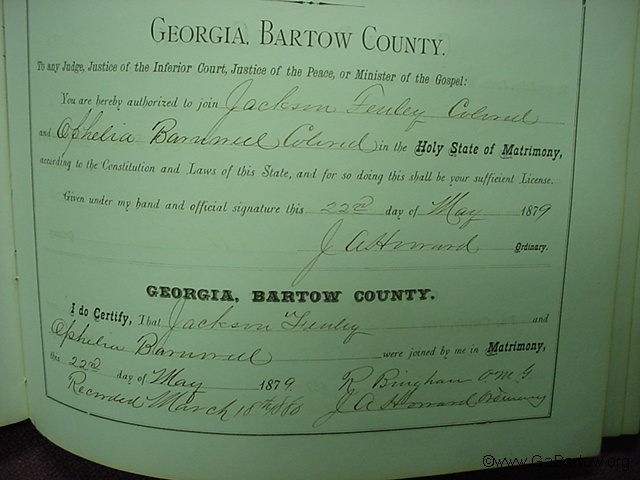 GEORGIA, BARTOW COUNTY.
To any Judge, Justice of the Inferior Court, Justice of the Peace, or Minister of the Gospel:
You are hereby authorized to join Jackson Fenley Colored
and Ophelia Barnwell Colored in the Holy State of Matrimony,
according to the Constitution and Laws of this State, and for so doing this shall be your sufficient License.
Given under my hand and official signature this 22nd day of May 1879
J A Howard Ordinary.
GEORGIA, BARTOW COUNTY.
I do Certify, That Jackson Fenley and
Ophelia Barnwell were joined by me in Matrimony,
this 22nd day of May 1879 R Bingham O.M.G
Recorded March 18th 1880 J A Howard Ordinary
©www.GaBartow.org